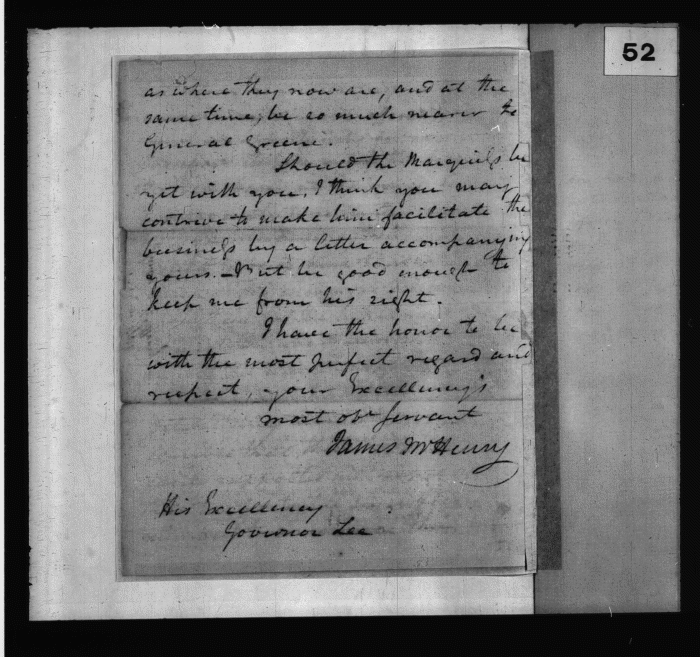 52
as where they now are, and at the
same time, be so much nearer to
General Greene.
Should the Marquiss be
yet with you, I think you may
contrive to make him facilitate the
business by a letter accompanying
yours. – But be good enough to
keep me from his sight.
I have the honor to be
with the most perfect regard and
respect, your Excellency's
most obt servant
James McHenry
His Excellency
Governor Lee